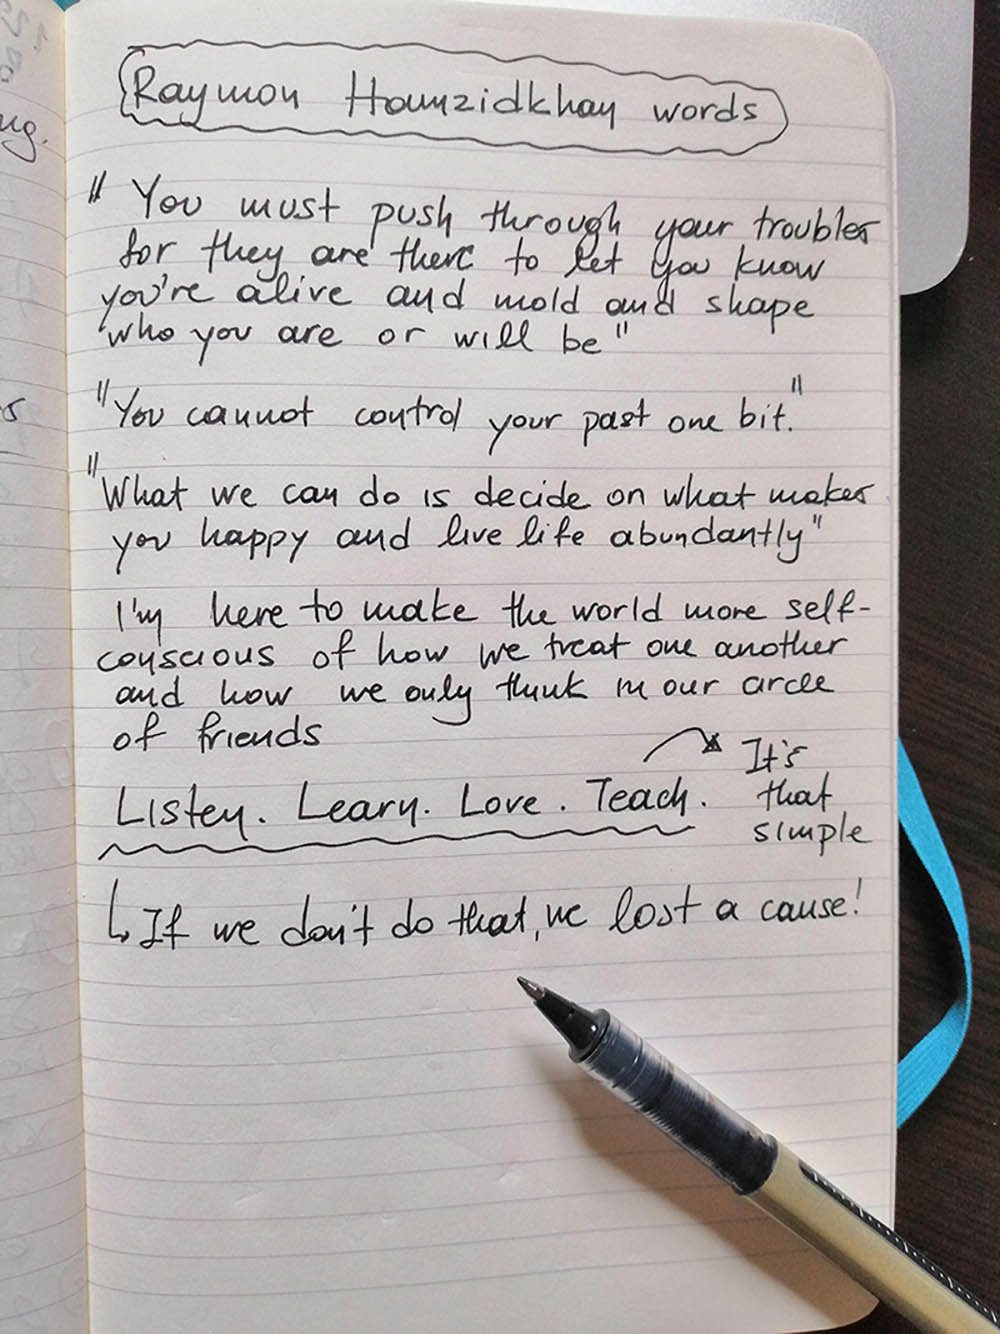 Raymon Hamzidkhan words
" You must push through your troubles
for they are there to let you know
you're alive and mold and shape
who you are or will be "
"You cannot control your past one bit."
"What we can do is decide on what makes
you happy and live life abundantly"
I'm here to make the world more self-
conscious of how we treat one another
and how we only think in our circle
of friends
Listen. Learn. Love. Teach.
It's
that
simple
If we don't do that, we lost a cause!
ng.